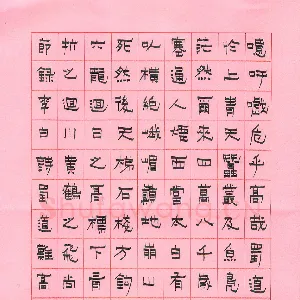 噫吁戲危乎高哉蜀道
於上青天蠶叢及魚鳧
茫然爾來四萬八千歲
塞通人煙西當太白有
以橫絕峨嵋巔地崩山
死然後天梯石棧方鉤
六龍迴日之高標下有
折之迴川黃鶴之飛尚
節錄李白詩蜀道難高